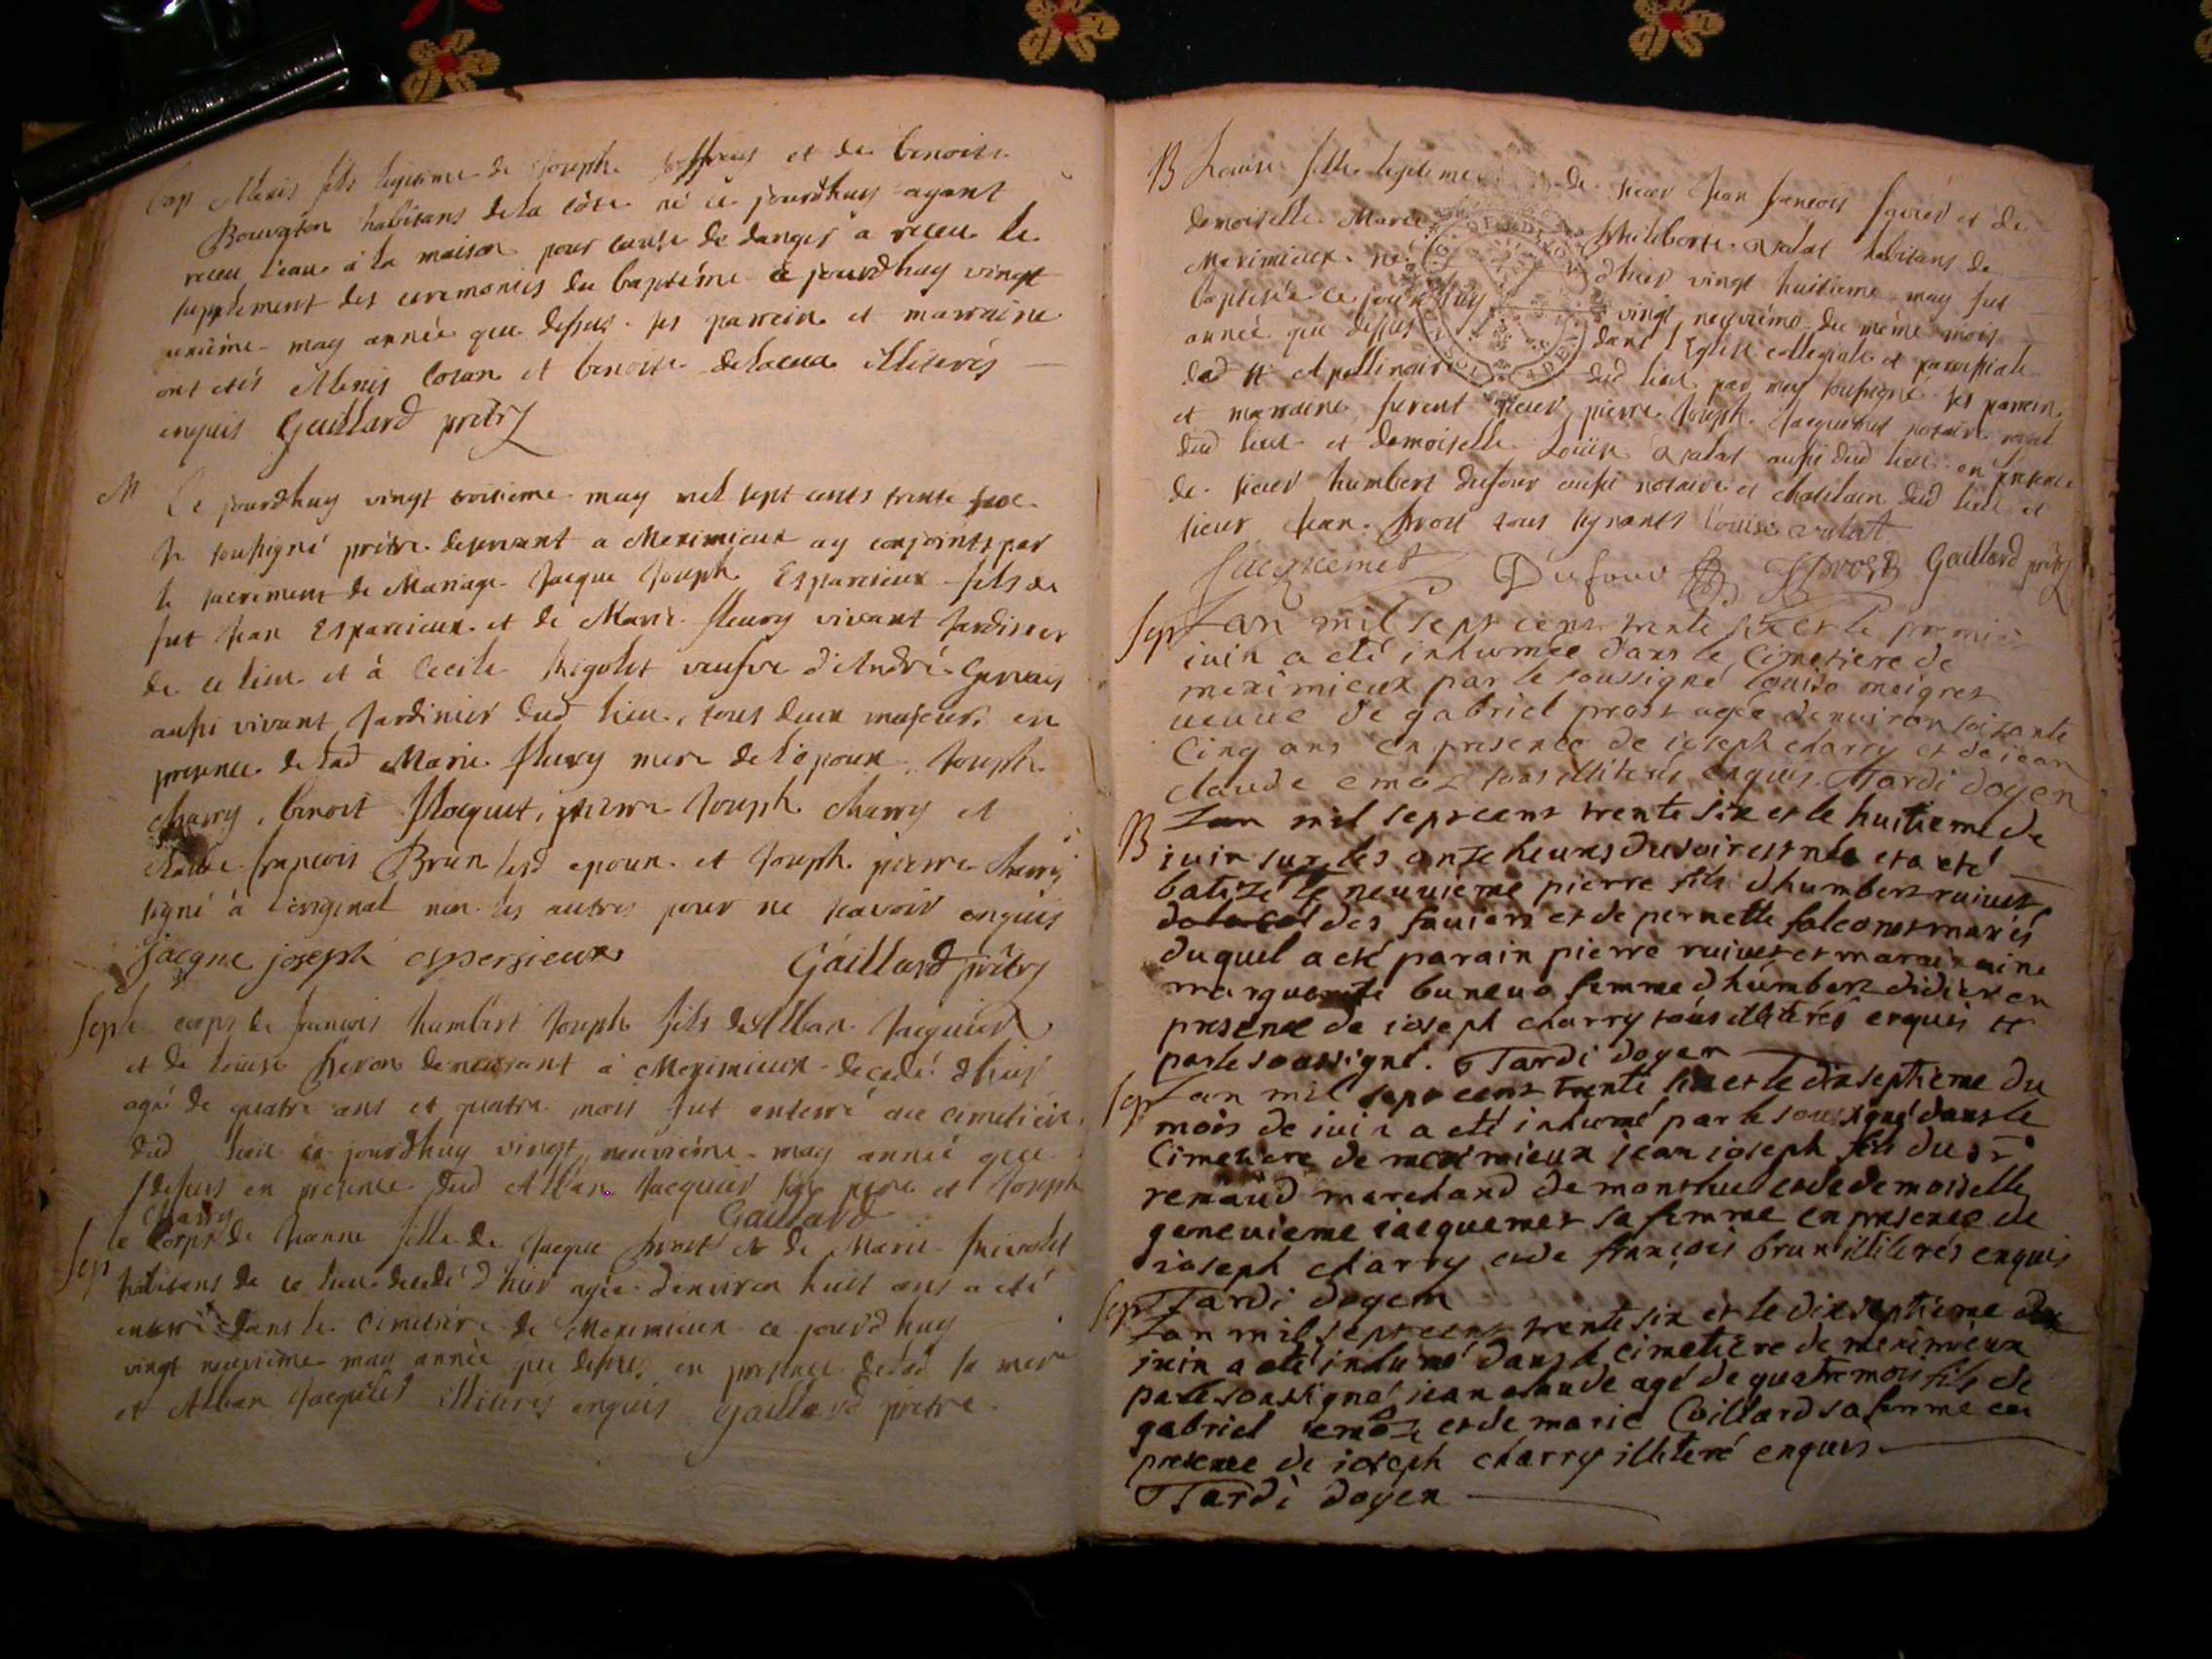 Bap Alexis fils legitime de Joseph et de benoite
Bouvgton habitans de la côte né ce jourdhuy ayant
receu l'eau à la maison pour cause de danger a receu le
supplement des ceremonies du baptême ce jourdhuy vingt
may année que dessus. ses parrein et marraine
ont étés Alexis et benoite illiterés
enquis Gaillard prêtre
M Ce jourdhuy vingt troisieme may mil sept cents trente six
Je soussigné prêtre desservant a Meximieux ay conjoints par
le sacrement de Mariage Jacque Joseph Esparcieux fils de
fut Jean Esparcieux et de Marie fleury vivant Jardinier
de ce lieu et à Cecile Rigolet veufve d'André Gervais
aussi vivant Jardinier dud lieu, tous deux majeurs en
presence de lad Marie fleury mere de l'époux Joseph
charry, benoit, pierre Joseph charry et
françois Brun lesd epoux et Joseph pierre charry
signé à l'original non les autres pour ne scavoir enquis
jacque joseph espersieux Gaillard prêtre
Sep le corps de francois humbert Joseph fils de Alban Jacquier
et de louise demeurant à Meximieux decedé d'hier
agé de quatre ans et quatre mois fut enterré au cimetière
dud lieu ce jourdhuy vingt neuvième may année que
dessus en presence dud Alban Jacquier son pere et Joseph
Charry Gaillard
Sep le Corps de Jeanne fille de Jacque et de Marie
habitans de ce lieu decedé d'hier agée d'environ huit ans a eté
enterré dans le Cimetière de Meximieux ce jourdhuy
vingt neuvième may année que dessus en presence de lad sa mere
et Alban Jacquier illiterés enquis Gaillard prêtre
B Louise fille legitime de sieur Jean francois et de
demoiselle Marie Philiberte habitans de
Meximieux né d'hier vingt huitieme may fut
baptisée ce jourdhuy vingt neuvième du même mois
année que dessus dans l'Eglise collegiale et paroissiale
dud lieu par moy soussigné ses parrein
et marraine furent sieur pierre Joseph Jacquemet notaire royal
dud lieu et demoiselle Louise aussi dud lieu en presence
de sieur humbert dufour aussi notaire et chatelain dud lieu et
sieur Jean tous signants Louise
Jacquemet Dufour Prost Gaillard prêtre
Sep Lan mil sept cent trente six et le premier
iuin a eté inhumée dans le Cimetiere de
meximieux par le soussigné louise meigret
ueuue de gabriel prost agée denuiron soixante
Cinq ans en presence de ioseph charry et de iean
claude emoz tous illiterés enquis. Tardi doyen
B Lan mil sept cent trente six et le huitieme de
iuin sur les onze heures du soir est née et a eté
batizé le neuuieme pierre fils dhumbert ruiuet
des fauiers et de pernette falconet mariés
duquel a eté parain pierre ruiuet et maraine
marguerite femme dhumbert didier en
presence de ioseph charry tous illiterés enquis et
par le soussigné. Tardi doyen
Sep Lan mil sept cent trente six et le dixseptieme du
mois de iuin a eté inhumé par le soussigné dans le
Cimetiere de meximieux iean ioseph fils du sr
renaud marchand de monthuel et de demoiselle
geneuieme iacquemet sa femme en presence de
ioseph charry et de françois brun illiterés enquis
Tardi doyen
Sep Lan mil sept cent trente six et le dixseptieme de
juin a eté inhumé dans le cimetiere de meximieux
par le soussigné iean claude agé de quatre mois fils de
gabriel emoz et de marie Cuillard sa femme en
presence de ioseph charry illiteré enquis
Tardi doyen